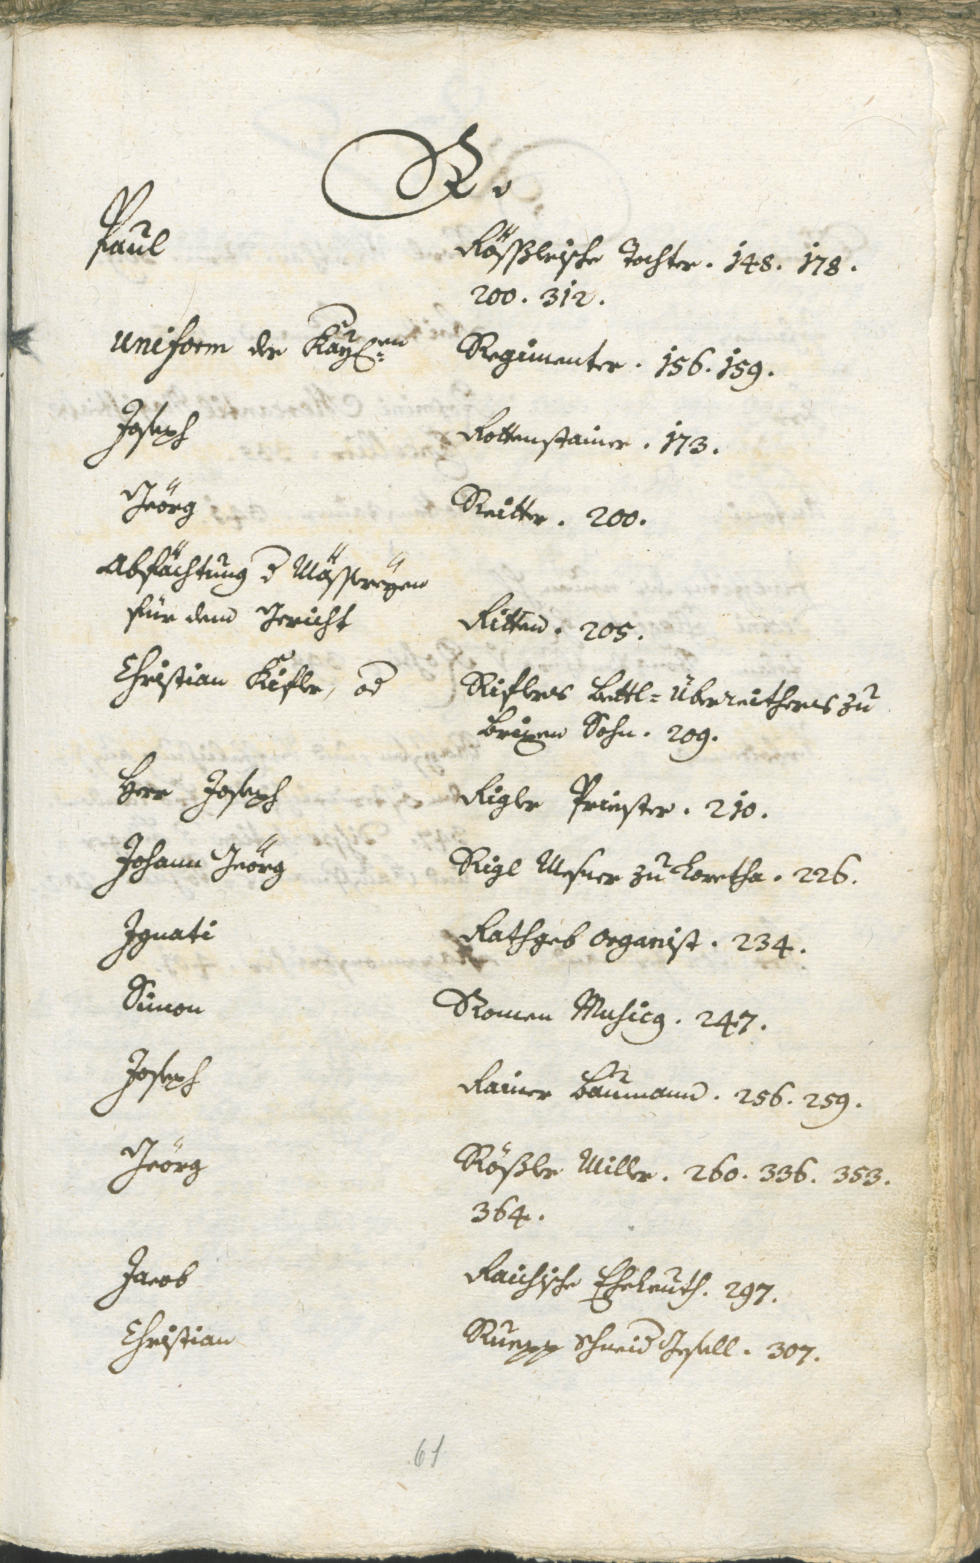 R.
Paul Rößlerische Tochter. 148. 178.
200. 312.
Uniform der Kay:en Regimenter. 156. 159.
Joseph Rottenstainer. 173.
Jeörg Reitter. 200.
Abfächtung d Mässereyen
für dem Gericht Ritten. 205.
Christian Kifler, od Riflers Bettl=Überreithers zu
Brixen Sohn. 209.
Herr Joseph Rigler Priester. 210.
Johann Jeörg Rigl Mesner zu Loretha. 226.
Ignati Rathgeb Organist. 234.
Simon Romen Musicg. 247.
Joseph Rainer Baumann. 256. 259.
Jeörg Rößler Miller. 260. 336. 353.
364.
Jacob Raichische Eheleuth. 297.
Christian Ruepp Schneid Gesell. 307.
61